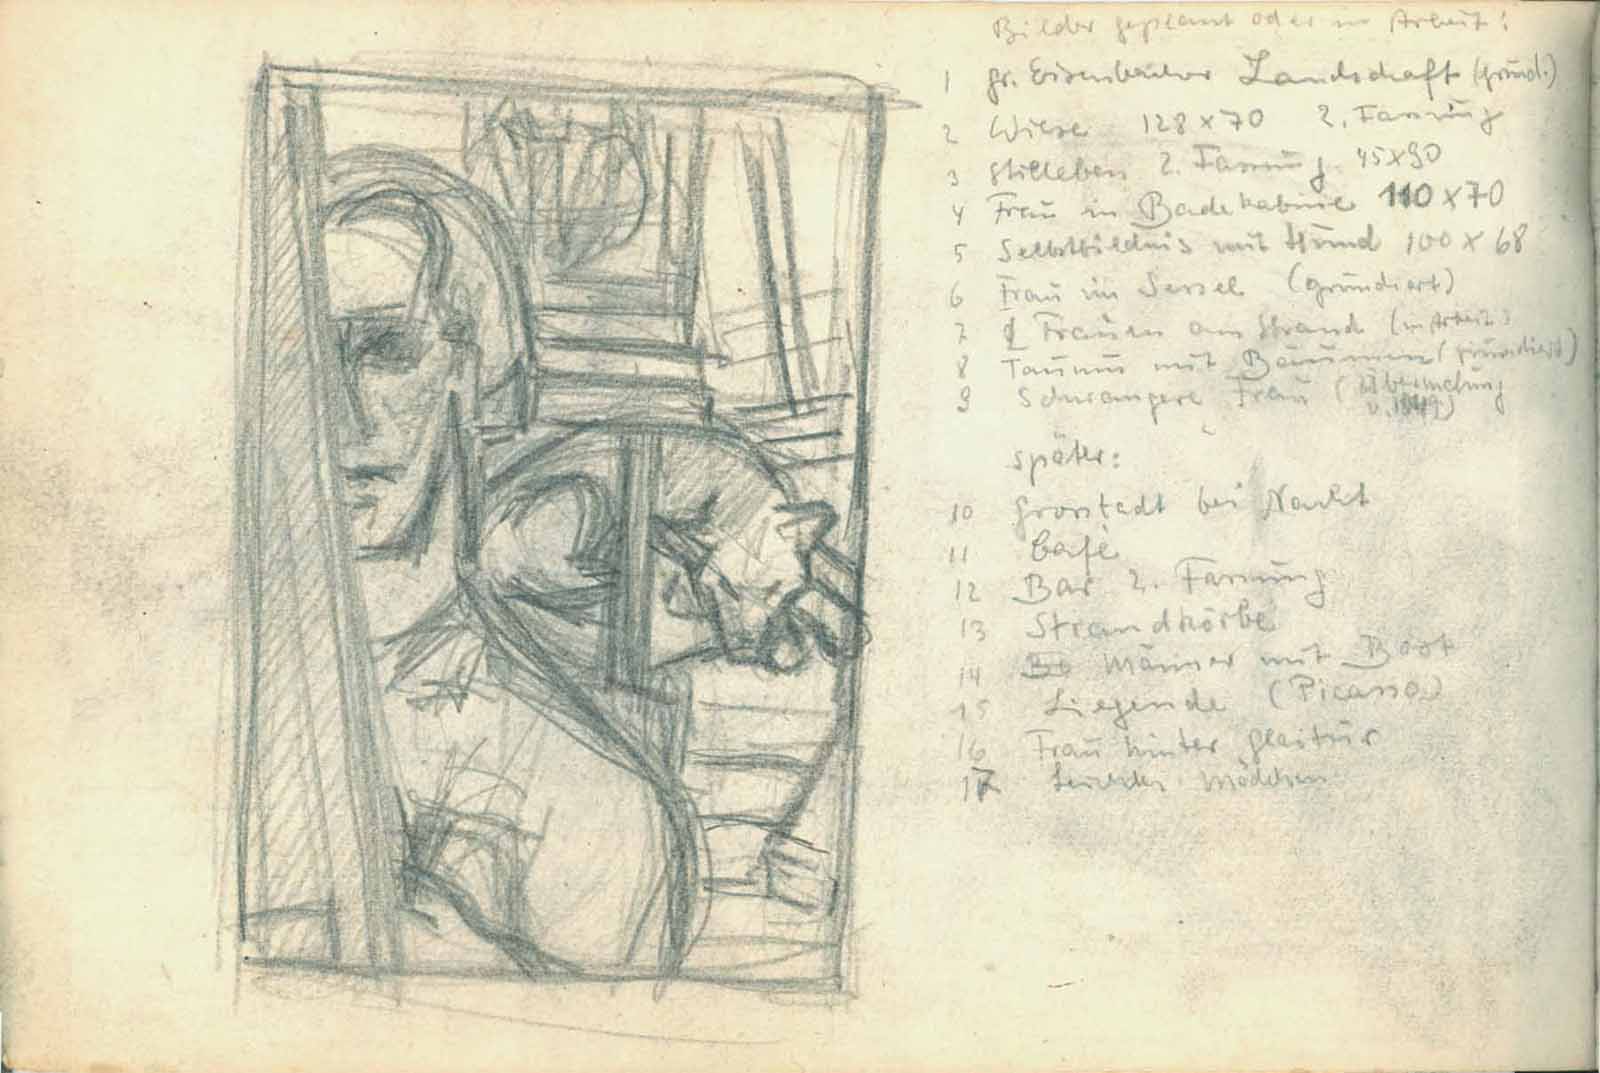 Bilder geplant oder in Arbeit:
1 gr. Landschaft (grund.)
2 Wiese 128 x 70 2. Fassung
3 Stilleben 2. Fassung 45x90
4 Frau in Badekabine 110 x 70
5 Selbstbildnis mit Hund 100 x 68
6 Frau im Sessel (grundiert)
7 Frauen am Strand (in Arbeit)
8 Taunus mit Bäumen (grundiert)
9 Schwangere Frau (Übermalung
v. 1949)
später:
10 Grosstadt bei Nacht
11 Café
12 Bar 2. Fassung
13 Strandkörbe
14 Männer mit Boot
15 Liegende (Picasso)
16 Frau hinter Glastür
17 Mädchen